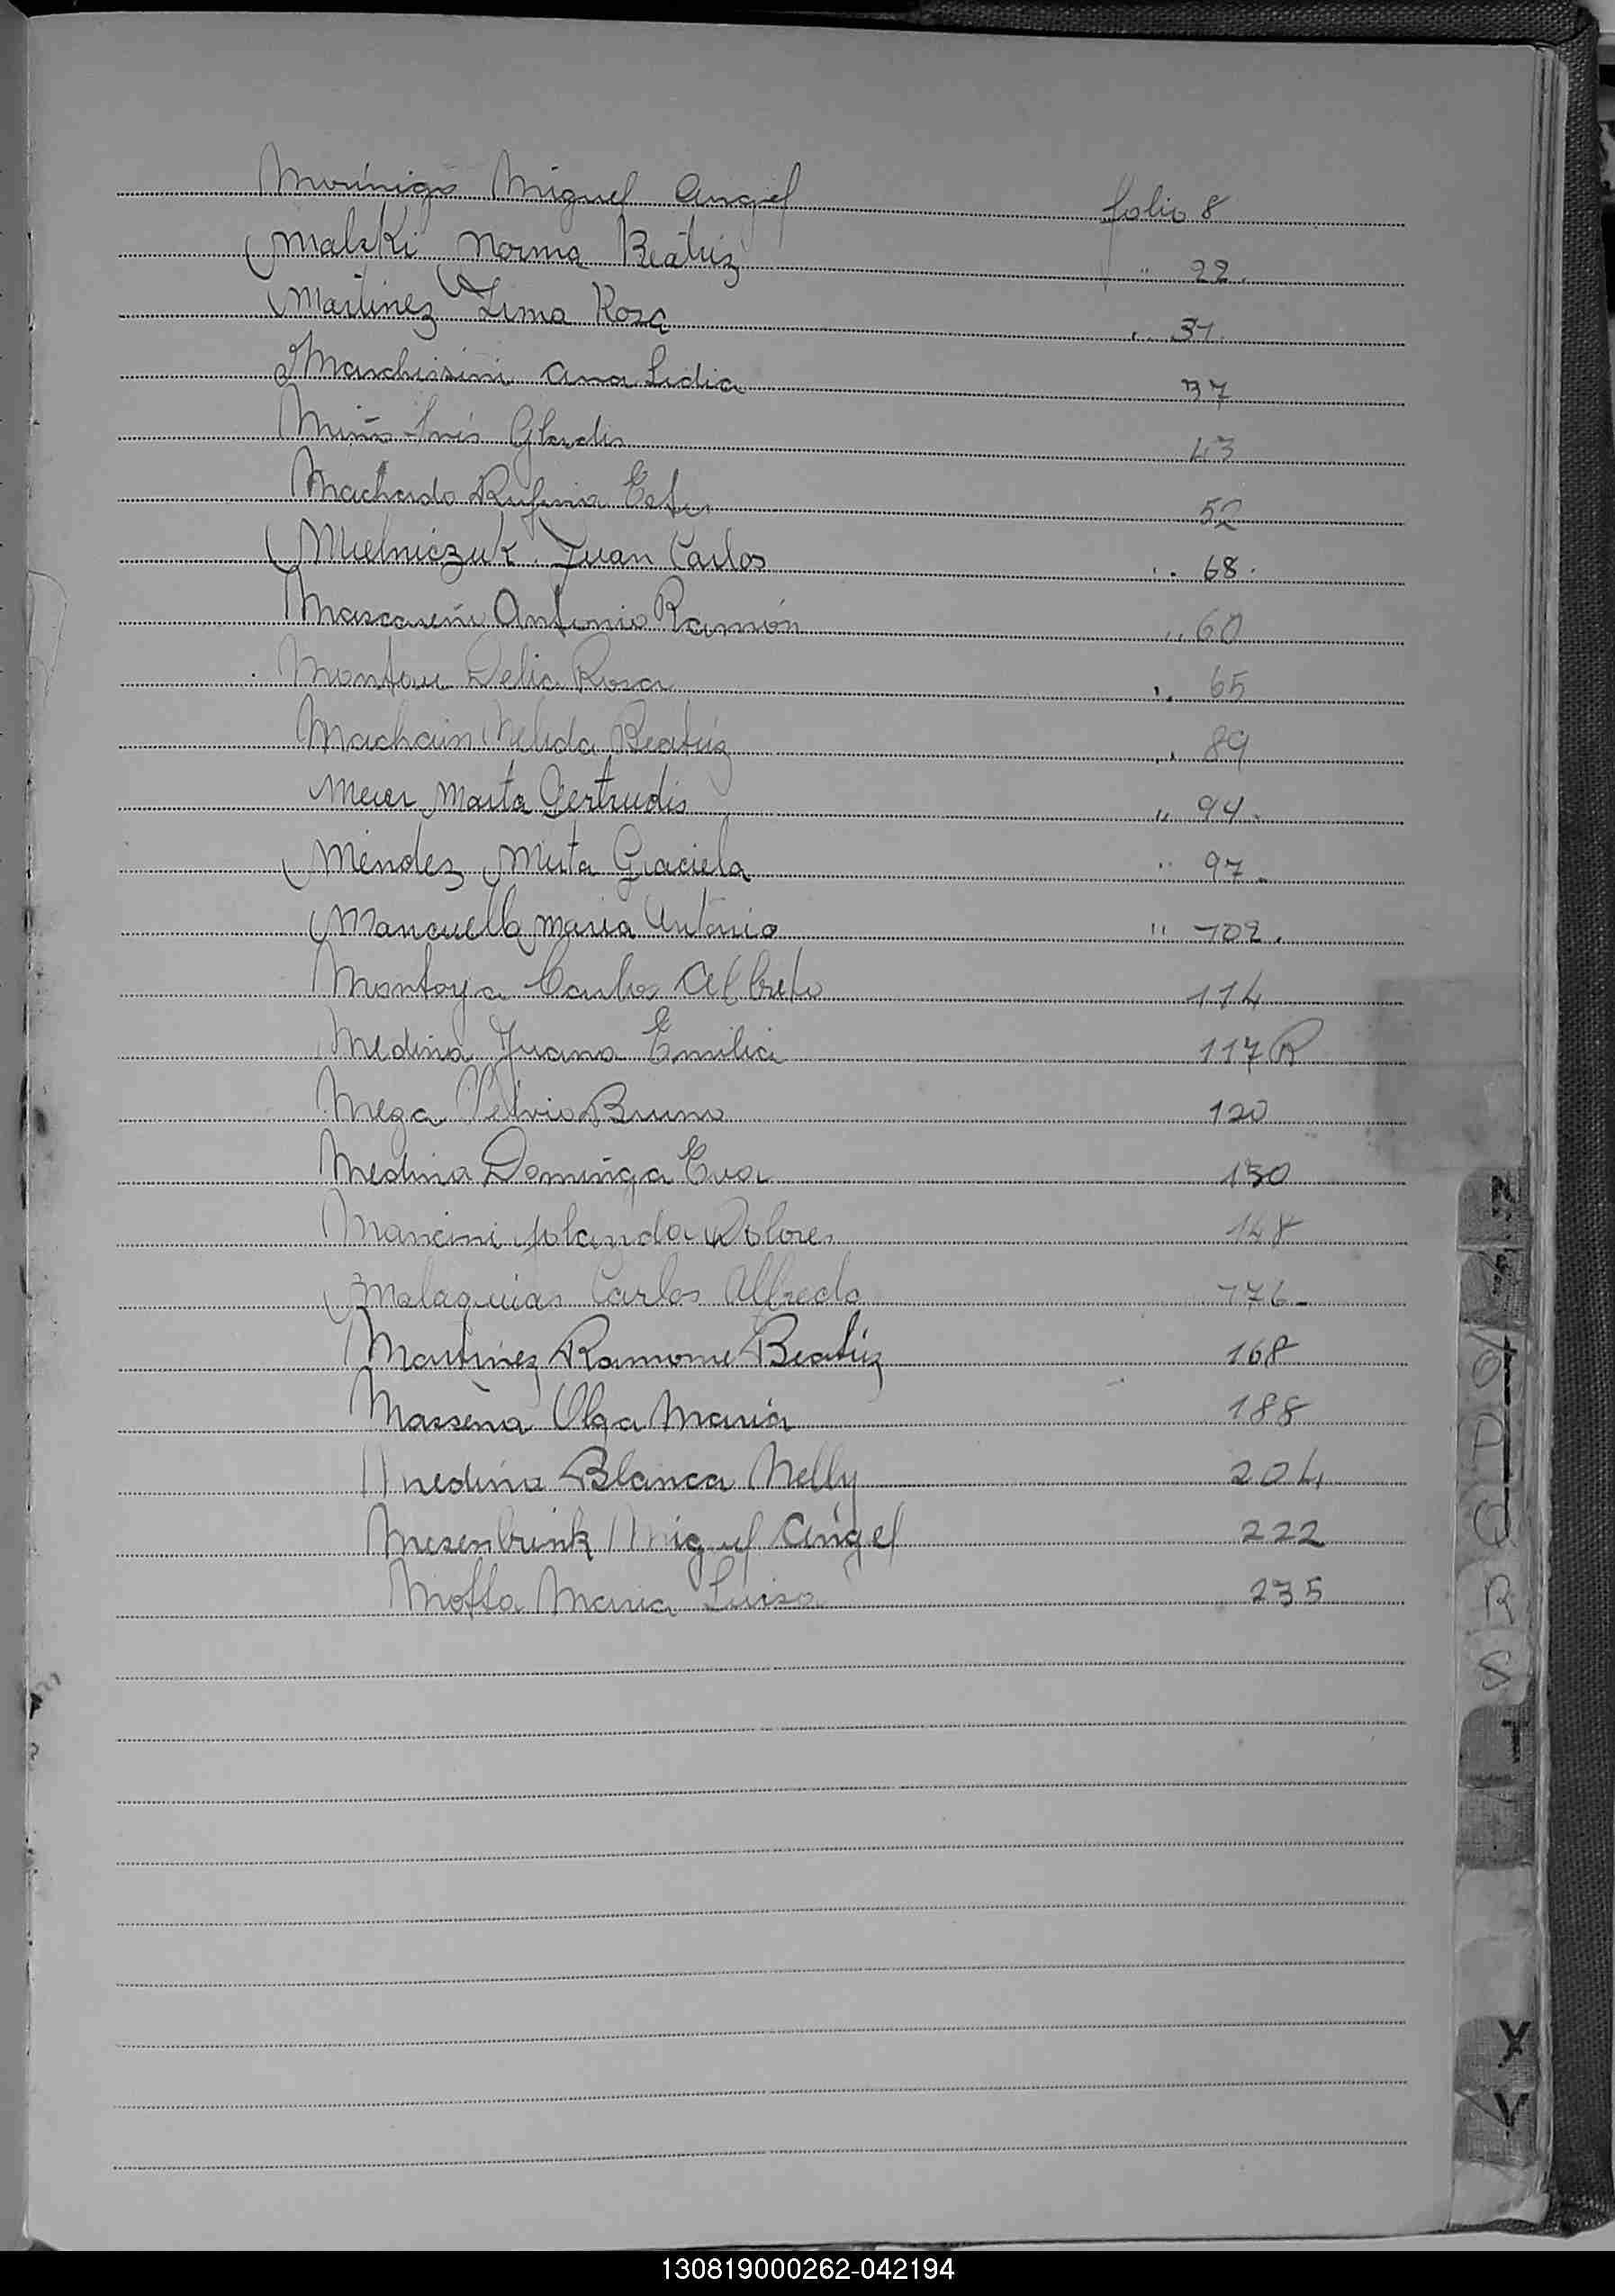 Morinigo Miguel Angel folio 8
Malski Norma Beatriz " 22.
Martinez Zima Rosa " 31.
Marchissini Ana Lidia 37
Miño Inés Gladis 43
Machado Rufina Ester 52
Mielniczuk Juan Carlos " 68.
Mascareño Antonio Ramón " 60
Delia Rosa " 65
Machain Nelida Beatriz " 89
Meier Marta Gertrudis " 94.
Méndez Mirta Graciela " 97.
Mancuello Maria Antonia " 102.
Montoya Carlos Alberto 114
Medina Juana Emilia 117 R
Meza Silvio Bruno 120
Medina Dominga Eva 130
Mancini Yolanda Dolores 148
Malaquias Carlos Alfredo 176.
Martinez Ramona Beatriz 168
Massena Olga Maria 188
Medina Blanca Nelly 204
Mesenbrink Miguel Angel 222
Motta Maria Luisa 235
N
O
P
Q
R
S
T
X
Y
130819000262-042194